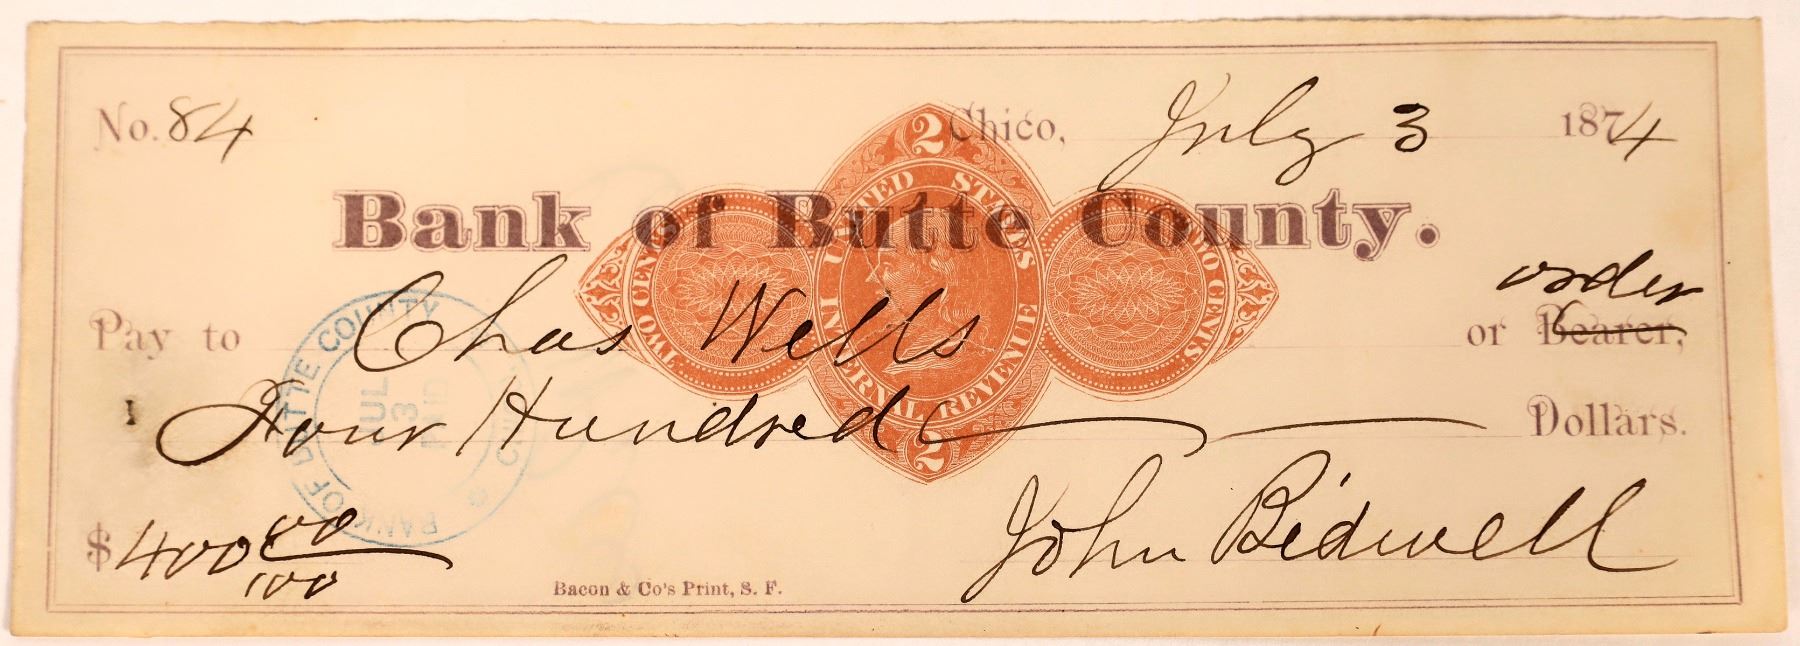 No. 84
Chico, July 3 1874
Bank of Butte County.
2
UNITED STATES
INTERNAL REVENUE
TWO CENTS
TWO CENTS
2
order
Pay to Chas Wells or Bearer,
Four Hundred Dollars.
BANK OF BUTTE COUNTY
JUL
3
PAID
$400 00/100
John Bidwell
Bacon & Co's Print, S. F.